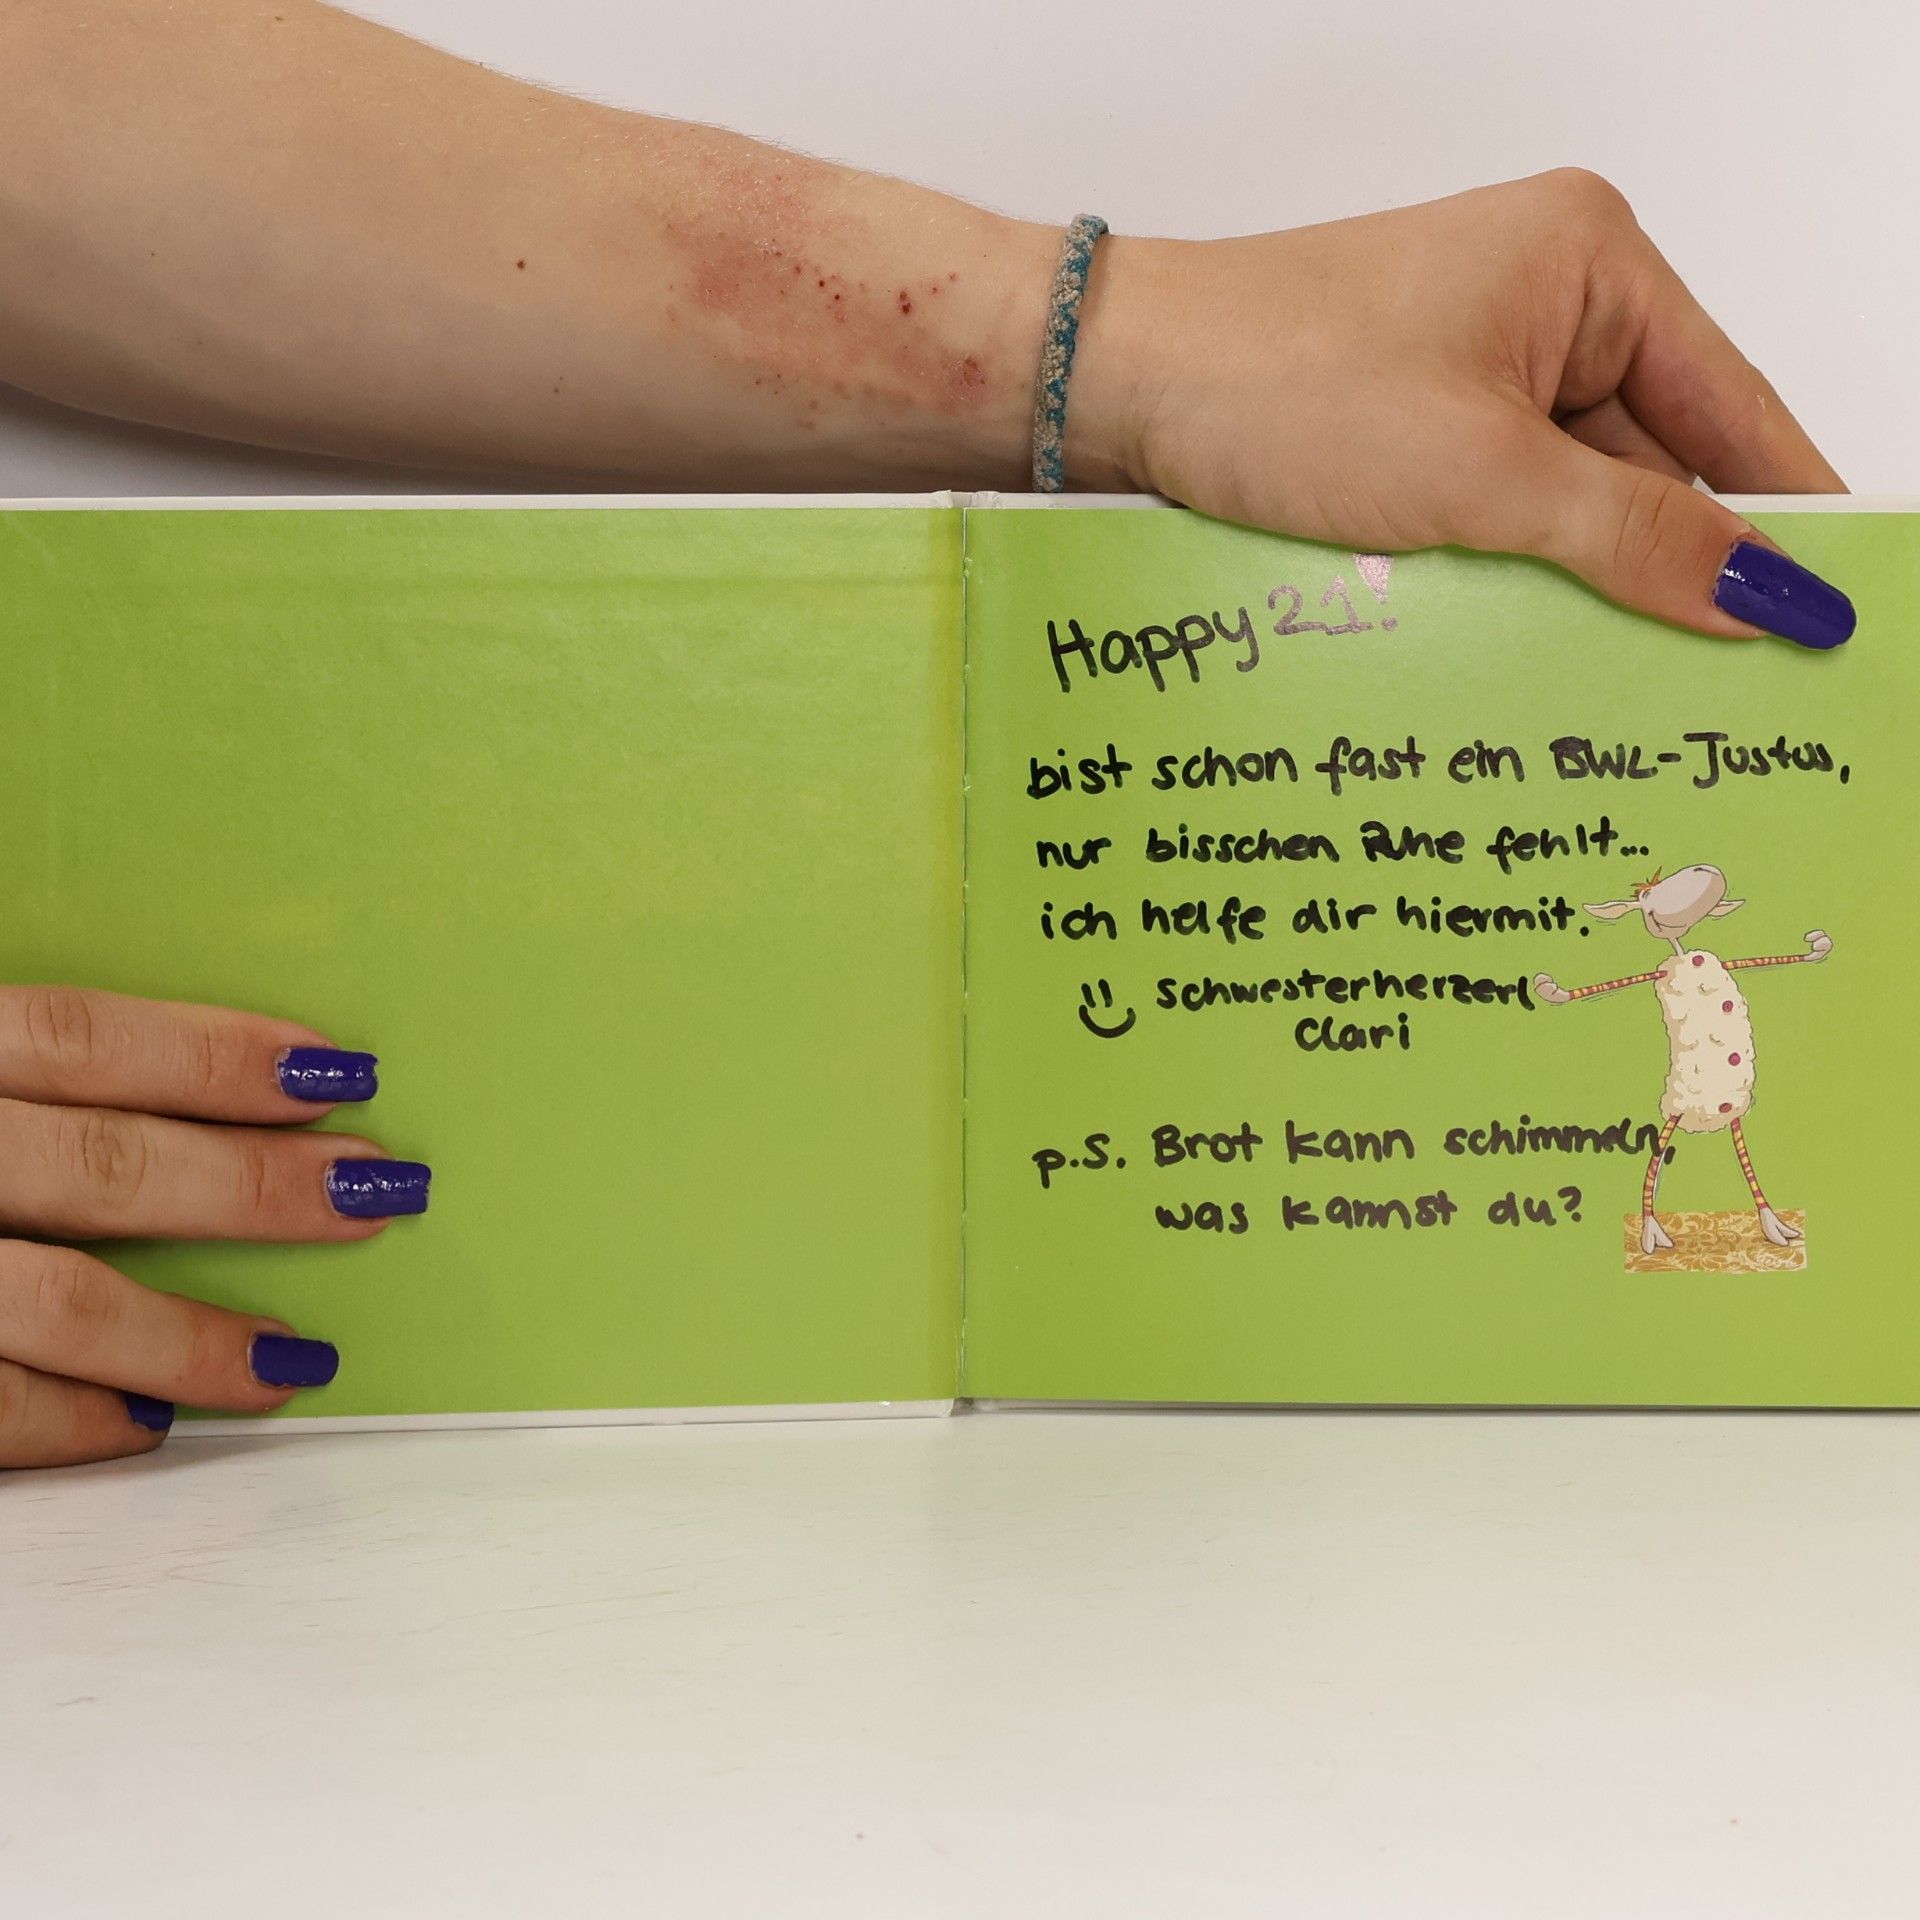 Happy 21!
bist schon fast ein BWL-Justus,
nur bisschen Ruhe fehlt...
ich helfe dir hiermit.
schwesterherzerl
Clari
p.S. Brot kann schimmeln,
was kannst du?